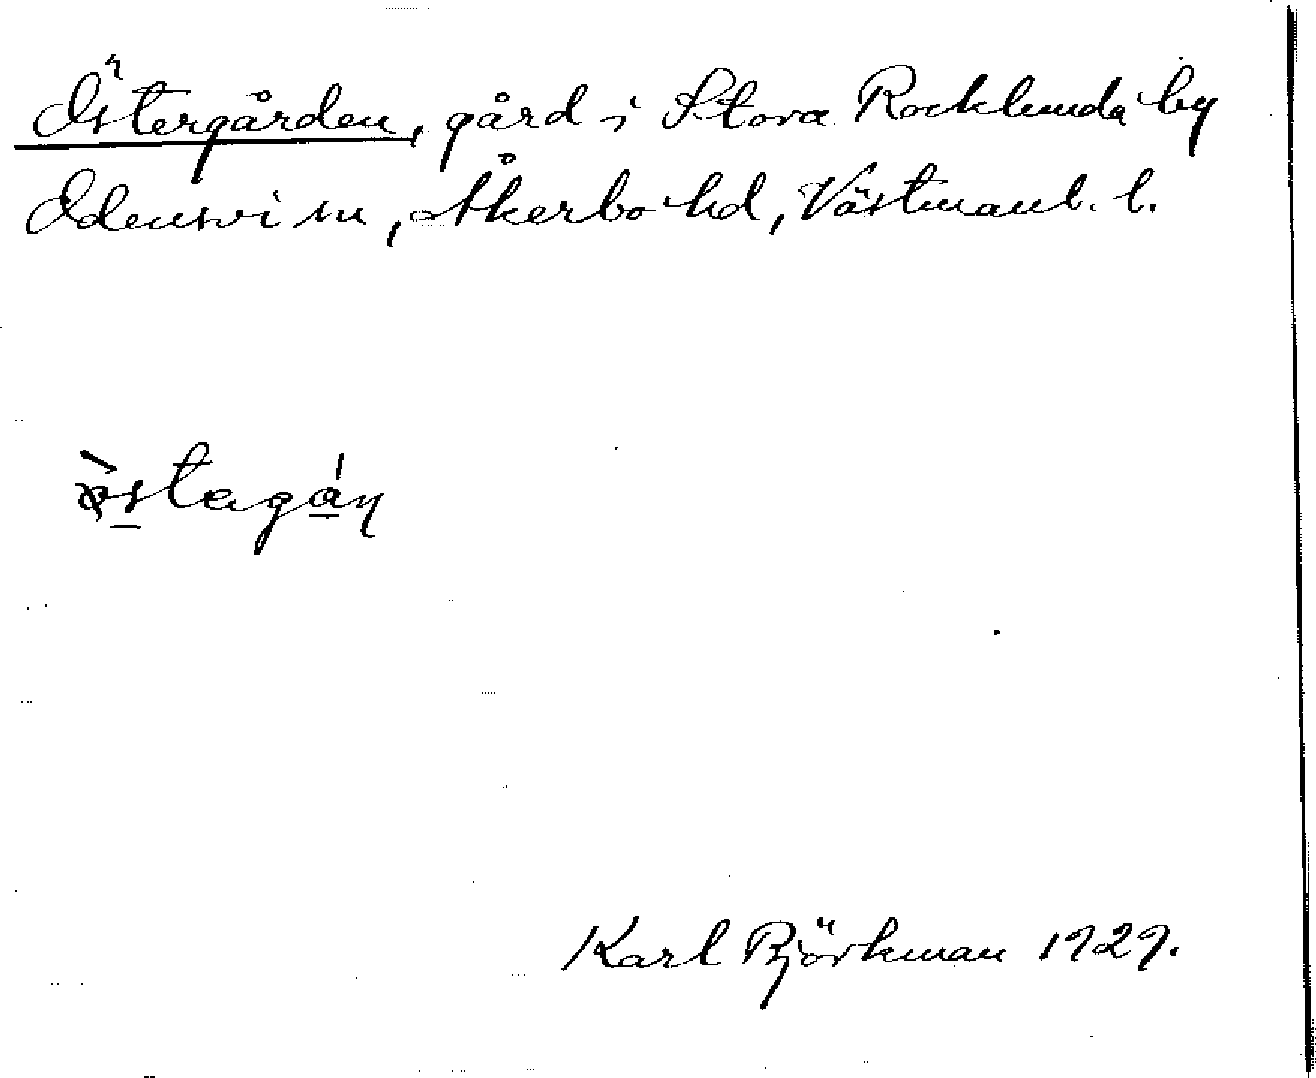 Östergården, gård i Stora Rocklunda by
Odensvi sn, Åkerbo hd, Västmanl. l.
Karl Björkman 1929.